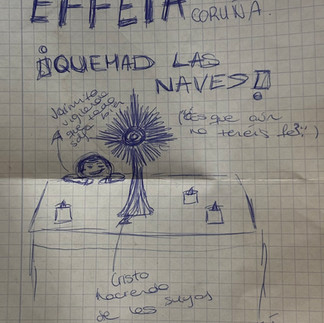 EFFETA CORUÑA.
¡QUEMAD LAS
NAVES!
vigilando
que todo
(¿Es que aún
no tenéis fe?:)
Cristo
haciendo
de las suyas